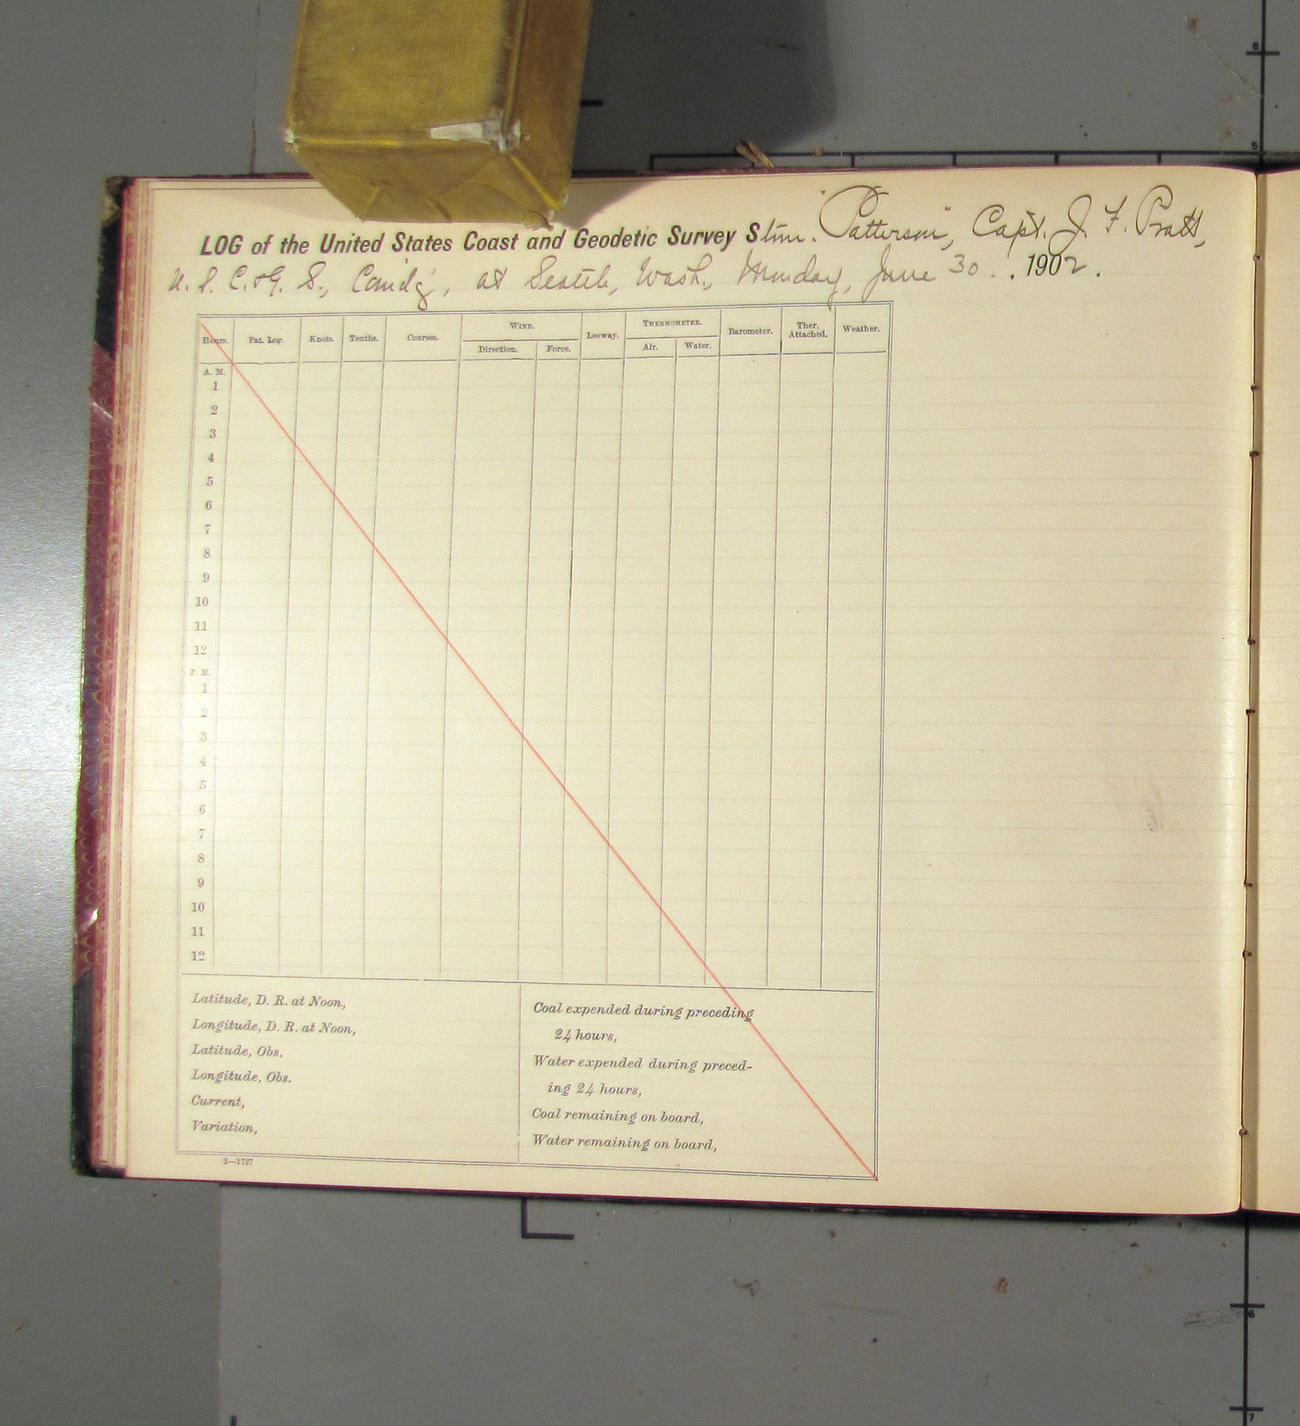 LOG of the United States Coast and Geodetic Survey Stmr. "Patterson", Capt. J. F. Pratt,
U. S. C. & G. S., Comd'g, at Seattle, Wash., Monday, June 30. . 1902.
Hours. Pat. Log. Knots. Tenths. Courses. WIND. Leeway. THERMOMETER. Barometer. Ther. Attached. Weather.
Direction. Force. Air. Water.
A. M.
1
2
3
4
5
6
7
8
9
10
11
12
P. M.
1
2
3
4
5
6
7
8
9
10
11
12
Latitude, D. R. at Noon,
Longitude, D. R. at Noon,
Latitude, Obs.
Longitude, Obs.
Current,
Variation,
Coal expended during preceding
24 hours,
Water expended during preced-
ing 24 hours,
Coal remaining on board,
Water remaining on board,
2—1727
5
6
6
7